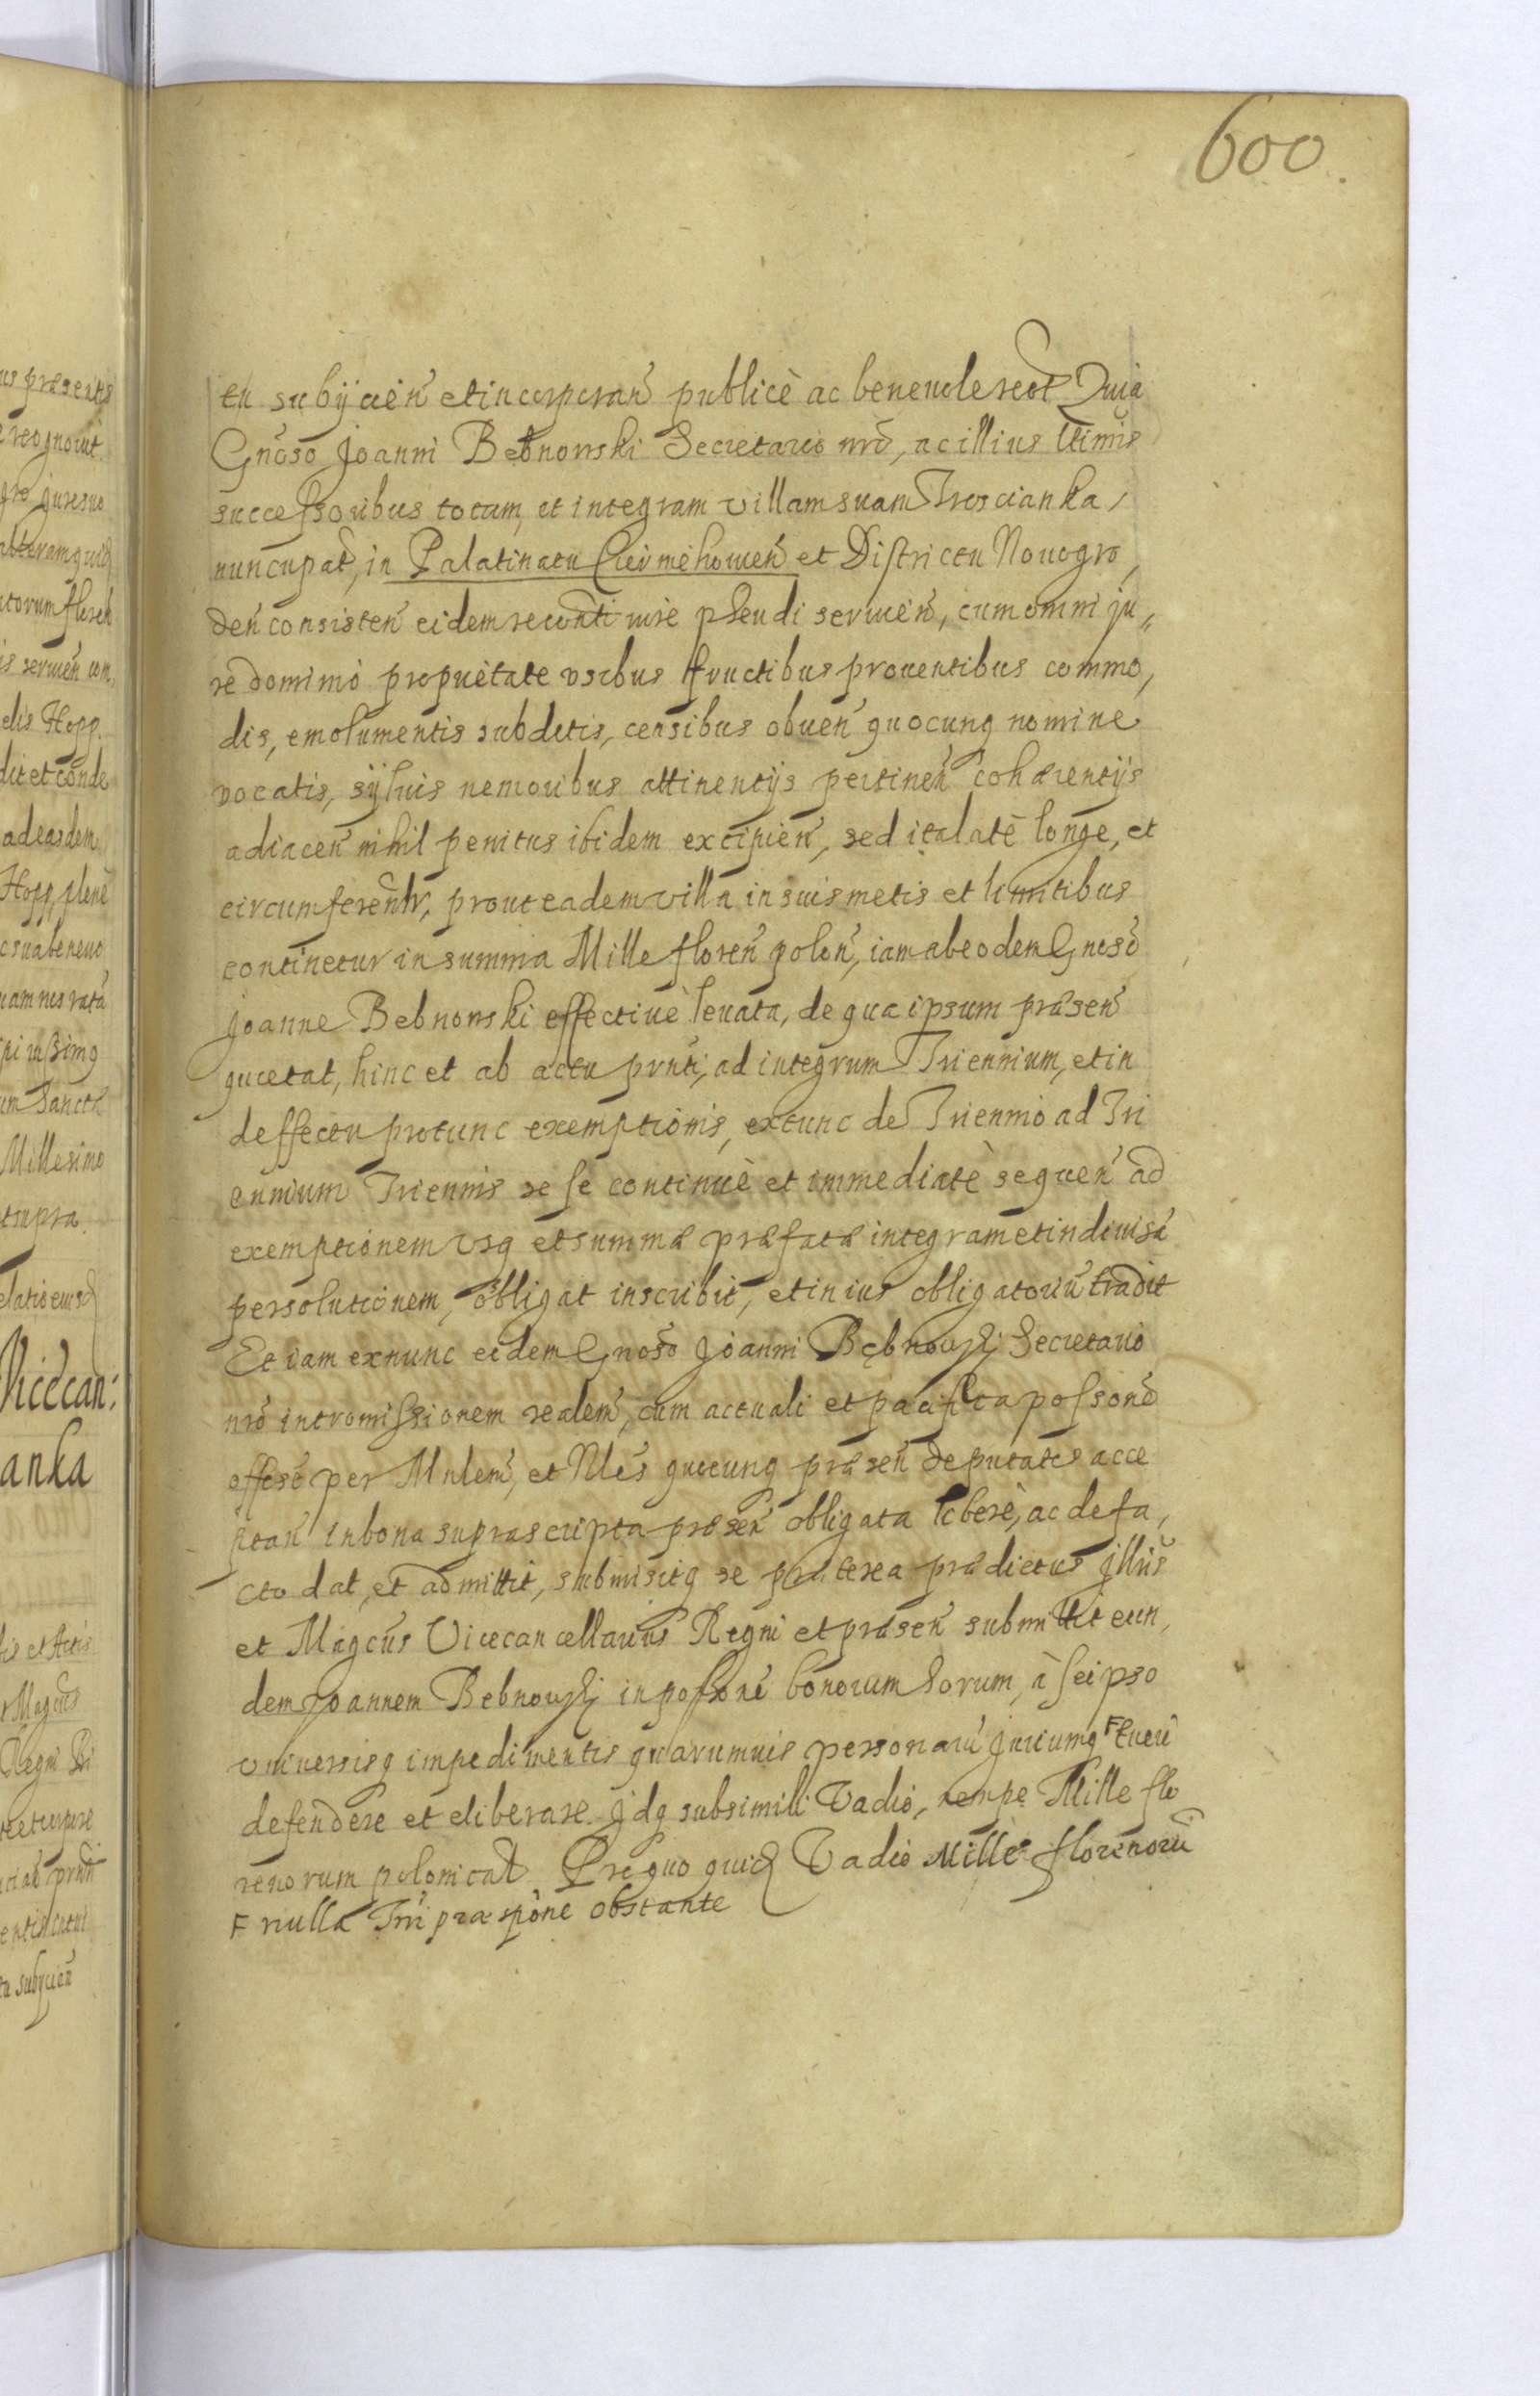 600.
tu subijcien̄ et incorporan̄ publicè ac beneuole recōt Quia
Gnōso Joanni Bebnowski Secretario nrō, ac illius ltimis
successoribus totam, et integram villam suam Troscianka,
nuncupat̄, in Palatinatu Czerniehouien̄ et Districtu Nouogro,
den̄ consisten̄ eidem recōnti iure pheudi seruien̄, cum omni ju„
re dominio proprietate vsibus fructibus prouentibus commo,
dis, emolumentis subditis, censibus obuen̄ quocunq nomine
vocatis, sÿluis nemoribus attinentijs pertinen̄ cohærentijs
adiacen̄ nihil penitus ibidem excipien̄, sed ita latè longe, et
circumferentr, prout eadem villa in suis metis et limitibus
continetur in summa Mille floren̄ polon̄, iam ab eodem Gnoso
Joanne Bebnowski effectiuè leuata, de qua ipsum præsen̄
quietat, hinc et ab actu prnti, ad integrum Triennium, et in
deffectu protunc exemptionis, extunc de Triennio ad Tri
ennium Triennis se se continuè et immediatè sequen̄ ad
exemptionem vsq et summæ præfatæ integram et indiuisā
persolutionem, obligat inscribit, et in ius obligatoriū tradit
Et iam exnunc eidem Gnoso Joanni Bębnowski Secretario
nrō intromissionem realem, cum actuali et pacifica possone
offese per Mnlem, et Nles quocunq præsen̄ deputatos acce
ptan̄ in bona suprascripta præsen̄ obligata libere, ac de fa,
cto dat, et admittit, submisitq se præterea prædictus Jllris
et Magcus Vicecancellarius Regni et præsen̄ submittit eun,
dem Joannem Bebnowski in possone bonorum horum, à seipso
vniuersisq impedimentis quarumuis personarū Juriumq F tueri
defendere et eliberare. Jdq sub simili Vadio, nempe Mille flo
renorum polonicat. Pro quo quid Vadio Mille florenorū
F nulla Tri præspōne obstante